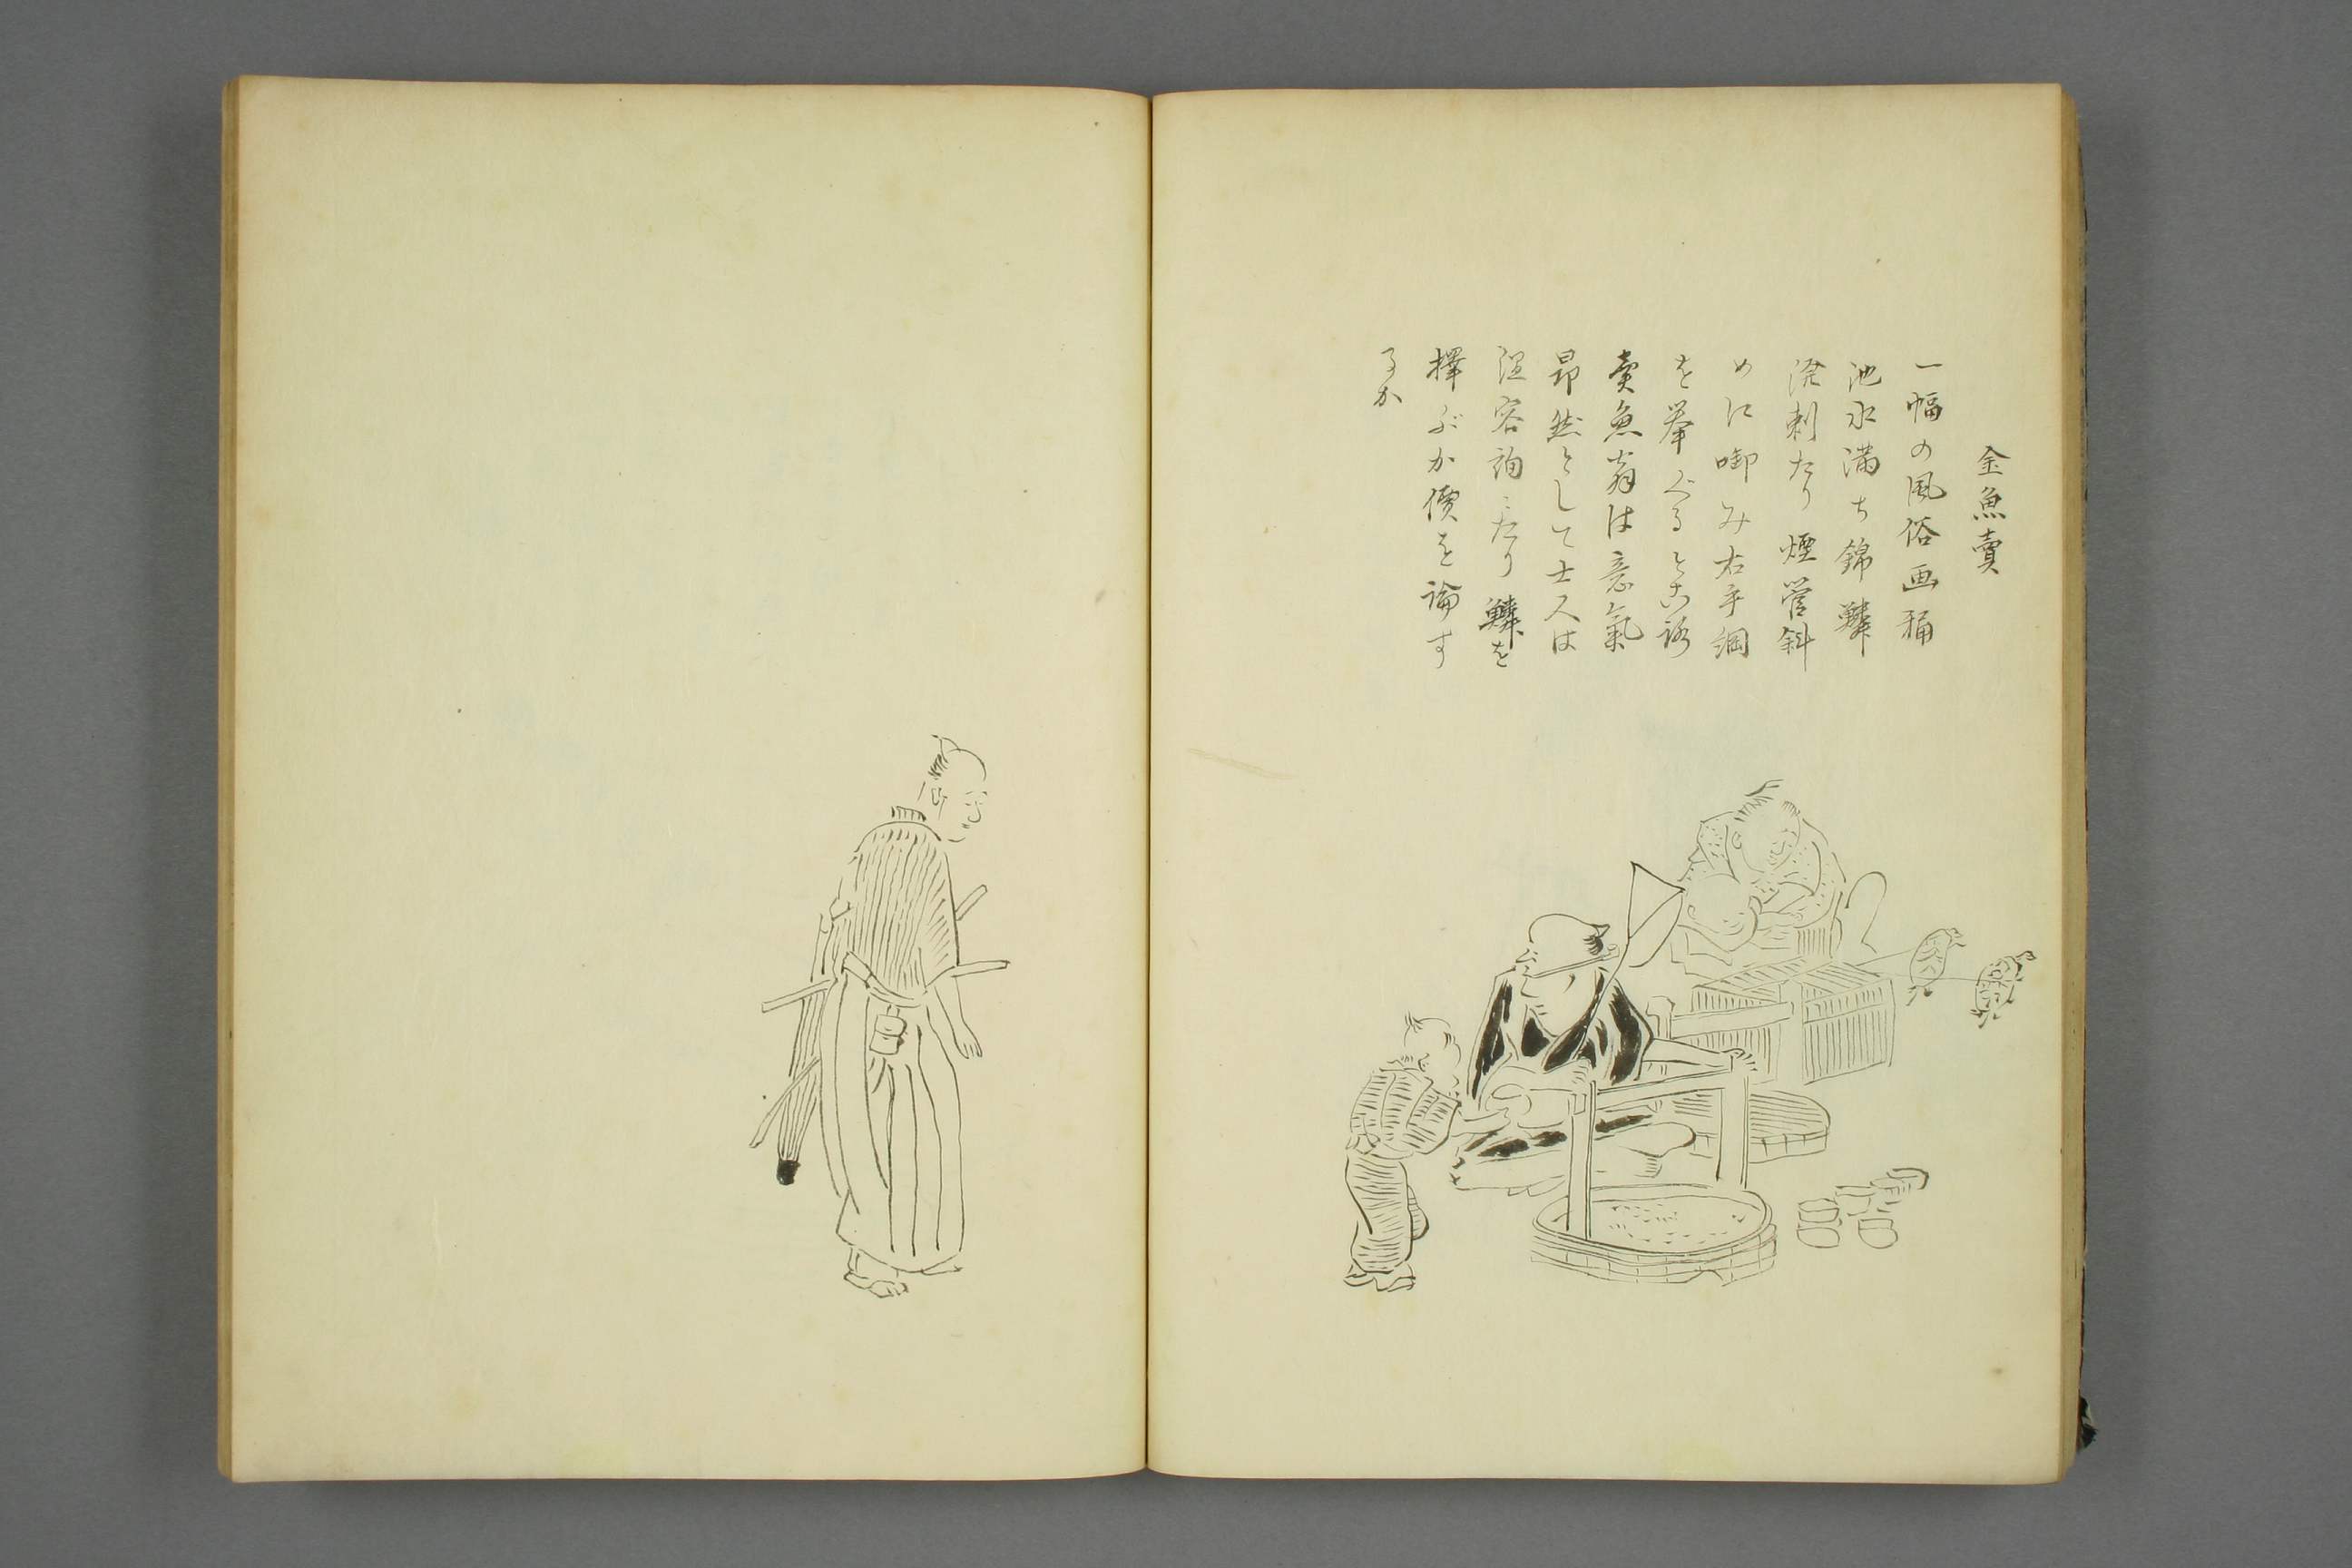 金魚賣
一幅の風俗画桶
池水満ち錦鱗
溌剌たり煙管斜
めに啣み右手綱
を挙ぐるところ
賣魚翁は意氣
昂然として士人は
温容詢々たり鱗を
擇ぶか價を論す
るか